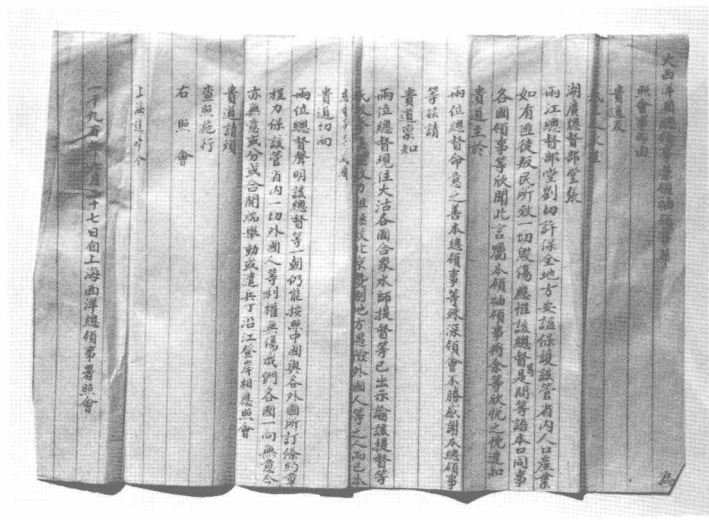 大西洋國總領事兼領袖領事 為
照會事
貴道及
湖廣總督部堂張
兩江總督部堂劉切許保全地方安謐保護該管省內人口產業
如有匪徒叛民所致一切毀傷應惟該總督是問等語本口同事
各國領事等欣聞此言屬本領袖領事將余等欣悅之忱達知
貴道至於
兩位總督命意之善本總領事等殊深領會不勝感謝本總領事
等茲請
貴道稟知
兩位總督現住大沽各國合眾水師提督等已出示諭該提督等
北京暨別地方遇險外國人等之人而已本
貴道切向
兩位總督聲明該總督等一朝仍能按照中國與各外國所訂條約章
程力保該管省內一切外國人等利權無傷我們各國一向無意今
亦無意或分或合開端舉動或遣兵丁沿江登岸相應照會
貴道請煩
查照施行
右照會
上海道
一千九百 月二十七日自上海西洋總領事署照會